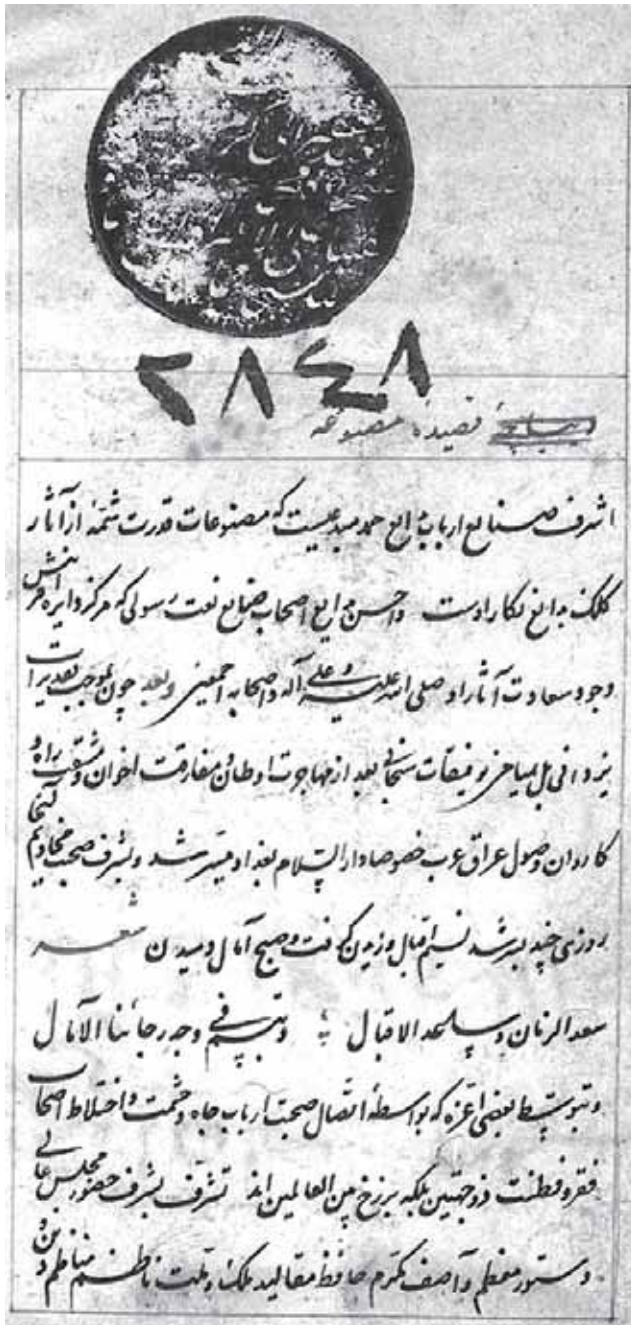 ۲۸۴۸
دیباچهٔ قصیدهٔ مصنوعه
اشرف صنایع ارباب بدایع حمد مبدعیست که مصنوعات قدرت شمهٔ از آثار
کلک بدایع نگار اوست و احسن بدایع اصحاب صنایع نعت رسولی که مرکز دایره آفرینش
وجود سعادت آثار او صلی الله علیه و علی آله و اصحابه اجمعین و بعد چون بموجب تقدیرات
یزدانی بل میامن توفیقات سبحانی بعد از مهاجرت اوطان و مفارقت اخوان و تشتت راه و
کاروان وصول عراق عرب خصوصا دار السلام بغداد میسر شد و بشرف صحبت مخادیم آنجا
روزی چند بسر شد نسیم اقبال وزیدن گرفت و صبح آمال دمیدن شعر
سعد الزمان و ساعد الاقبال و تبسم فی وجه رجائنا الآمال
و بتوسط بعضی اعزه که بواسطهٔ اتصال صحبت ارباب جاه و حشمت و اختلاط اصحاب
فقر و فطنت ذو جهتین بلکه برزخ بین العالمین اند تشرف بشرف حضور مجلس عالی
دستور معظم و آصف مکرم حافظ مقالید ملک و ملت ناظم مناظم دین و